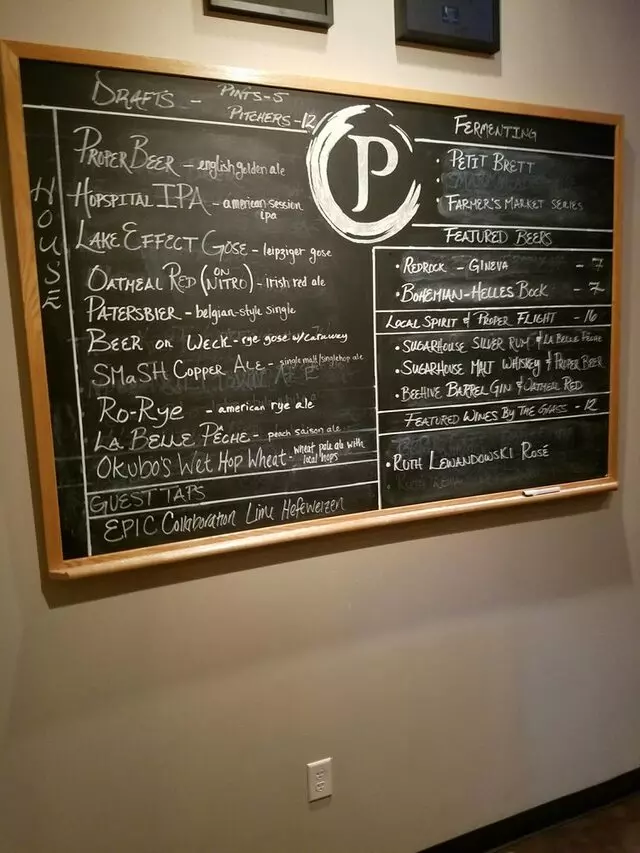 DRAFTS - PINTS-5
PITCHERS-12
HOUSE
PROPER BEER - english golden ale
HOPSPITAL IPA - american session
ipa
LAKE EFFECT GOSE - leipziger gose
OATMEAL RED (ON NITRO) - irish red ale
PATERSBIER - belgian-style single
BEER ON WECK - rye gose w/caraway
SMaSH COPPER ALE - single malt/single hop ale
RO-RYE - american rye ale
LA BELLE PÊCHE - peach saison ale
OKUBO'S WET HOP WHEAT - wheat pale ale with
local hops
GUEST TAPS
EPIC Collaboration Lime Hefeweizen
P
FERMENTING
• PETIT BRETT
• FARMER'S MARKET SERIES
FEATURED BEERS
• REDROCK - GINEVA - 7
• BOHEMIAN-HELLES BOCK - 7
LOCAL SPIRIT & PROPER FLIGHT - 16
• SUGARHOUSE SILVER RUM & LA BELLE PÊCHE
• SUGARHOUSE MALT WHISKEY & PROPER BEER
• BEEHIVE BARREL GIN & OATMEAL RED
FEATURED WINES BY THE GLASS - 12
• RUTH LEWANDOWSKI ROSÉ